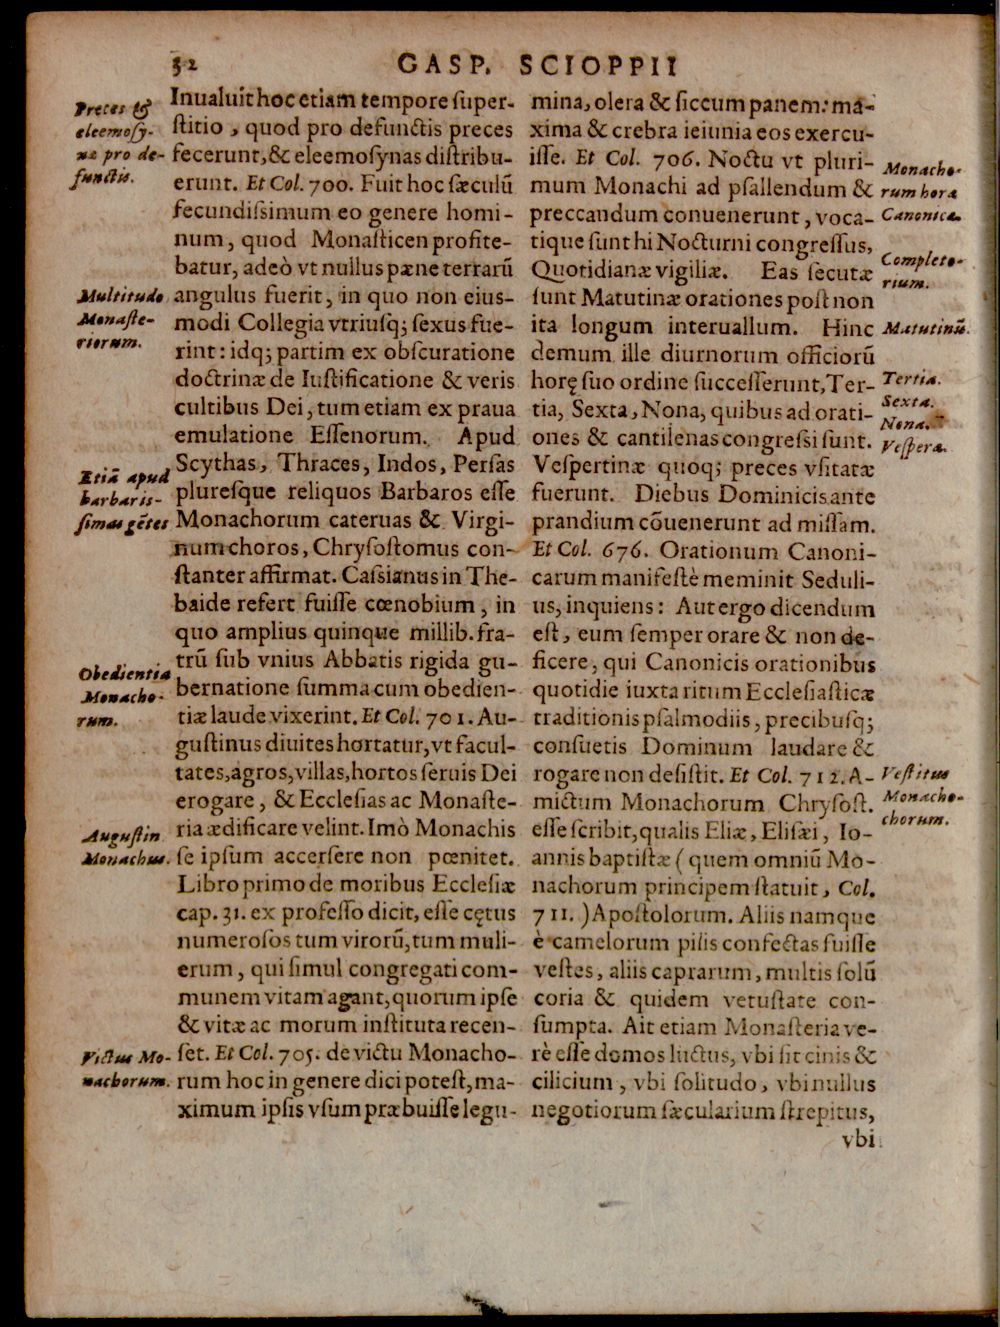 32
GASP. SCIOPPII
Preces &
eleemosy-
næ pro de-
functis.
Inualuit hoc etiam tempore ſuper-
ſtitio, quod pro defunctis preces
fecerunt, & eleemoſynas diſtribu-
erunt. Et Col. 700. Fuit hoc ſæculũ
fecundiſsimum eo genere homi-
num, quod Monaſticen profite-
batur, adeò vt nullus pæne terrarũ
Multitudo
Monaſte-
riorum.
angulus fuerit, in quo non eius-
modi Collegia vtriuſq; ſexus fue-
rint: idq; partim ex obſcuratione
doctrinæ de Iuſtificatione & veris
cultibus Dei, tum etiam ex praua
emulatione Eſſenorum. Apud
Etiã apud
barbariſ-
ſimas gẽtes
Scythas, Thraces, Indos, Perſas
plureſque reliquos Barbaros eſſe
Monachorum cateruas & Virgi-
num choros, Chryſoſtomus con-
ſtanter affirmat. Caſsianus in The-
baide refert fuiſſe cœnobium, in
quo amplius quinque millib. fra-
Obedientia
Monacho-
rum.
trũ ſub vnius Abbatis rigida gu-
bernatione ſumma cum obedien-
tiæ laude vixerint. Et Col. 701. Au-
guſtinus diuites hortatur, vt facul-
tates, agros, villas, hortos ſeruis Dei
erogare, & Eccleſias ac Monaſte-
Auguſtin
Monachus.
ria ædificare velint. Imò Monachis
ſe ipſum accerſere non pœnitet.
Libro primo de moribus Eccleſiæ
cap. 31. ex profeſſo dicit, eſſe cętus
numeroſos tum virorũ, tum muli-
erum, qui ſimul congregati com-
munem vitam agant, quorum ipſe
& vitæ ac morum inſtituta recen-
Victus Mo-
nachorum.
ſet. Et Col. 705. de victu Monacho-
rum hoc in genere dici poteſt, ma-
ximum ipſis vſum præbuiſſe legu-
mina, olera & ſiccum panem: ma-
xima & crebra ieiunia eos exercu-
iſſe. Et Col. 706. Noctu vt pluri-
mum Monachi ad pſallendum &
preccandum conuenerunt, voca-
tique ſunt hi Nocturni congreſſus,
Quotidianæ vigiliæ. Eas ſecutæ
ſunt Matutinæ orationes poſt non
ita longum interuallum. Hinc
demum ille diurnorum officiorũ
horę ſuo ordine ſucceſſerunt, Ter-
tia, Sexta, Nona, quibus ad orati-
ones & cantilenas congreſsi ſunt.
Veſpertinæ quoq; preces vſitatæ
fuerunt. Diebus Dominicis ante
prandium cõuenerunt ad miſſam.
Et Col. 676. Orationum Canoni-
carum manifeſtè meminit Seduli-
us, inquiens: Aut ergo dicendum
eſt, eum ſemper orare & non de-
ficere, qui Canonicis orationibus
quotidie iuxta ritum Eccleſiaſticæ
traditionis pſalmodiis, precibuſq;
conſuetis Dominum laudare &
rogare non deſiſtit. Et Col. 712. A-
mictum Monachorum Chryſoſt.
eſſe ſcribit, qualis Eliæ, Eliſæi, Io-
annis baptiſtæ (quem omniũ Mo-
nachorum principem ſtatuit, Col.
711.) Apoſtolorum. Aliis namque
è camelorum pilis confectas fuiſſe
veſtes, aliis caprarum, multis ſolũ
coria & quidem vetuſtate con-
ſumpta. Ait etiam Monaſteria ve-
rè eſſe domos luctus, vbi ſit cinis &
cilicium, vbi ſolitudo, vbi nullus
negotiorum ſæcularium ſtrepitus,
Monacho-
rum hora
Canonica.
Completo-
rium.
Matutinũ.
Tertia.
Sexta.
Nona.
Veſpera.
Veſtitus
Monacho-
chorum.
vbi